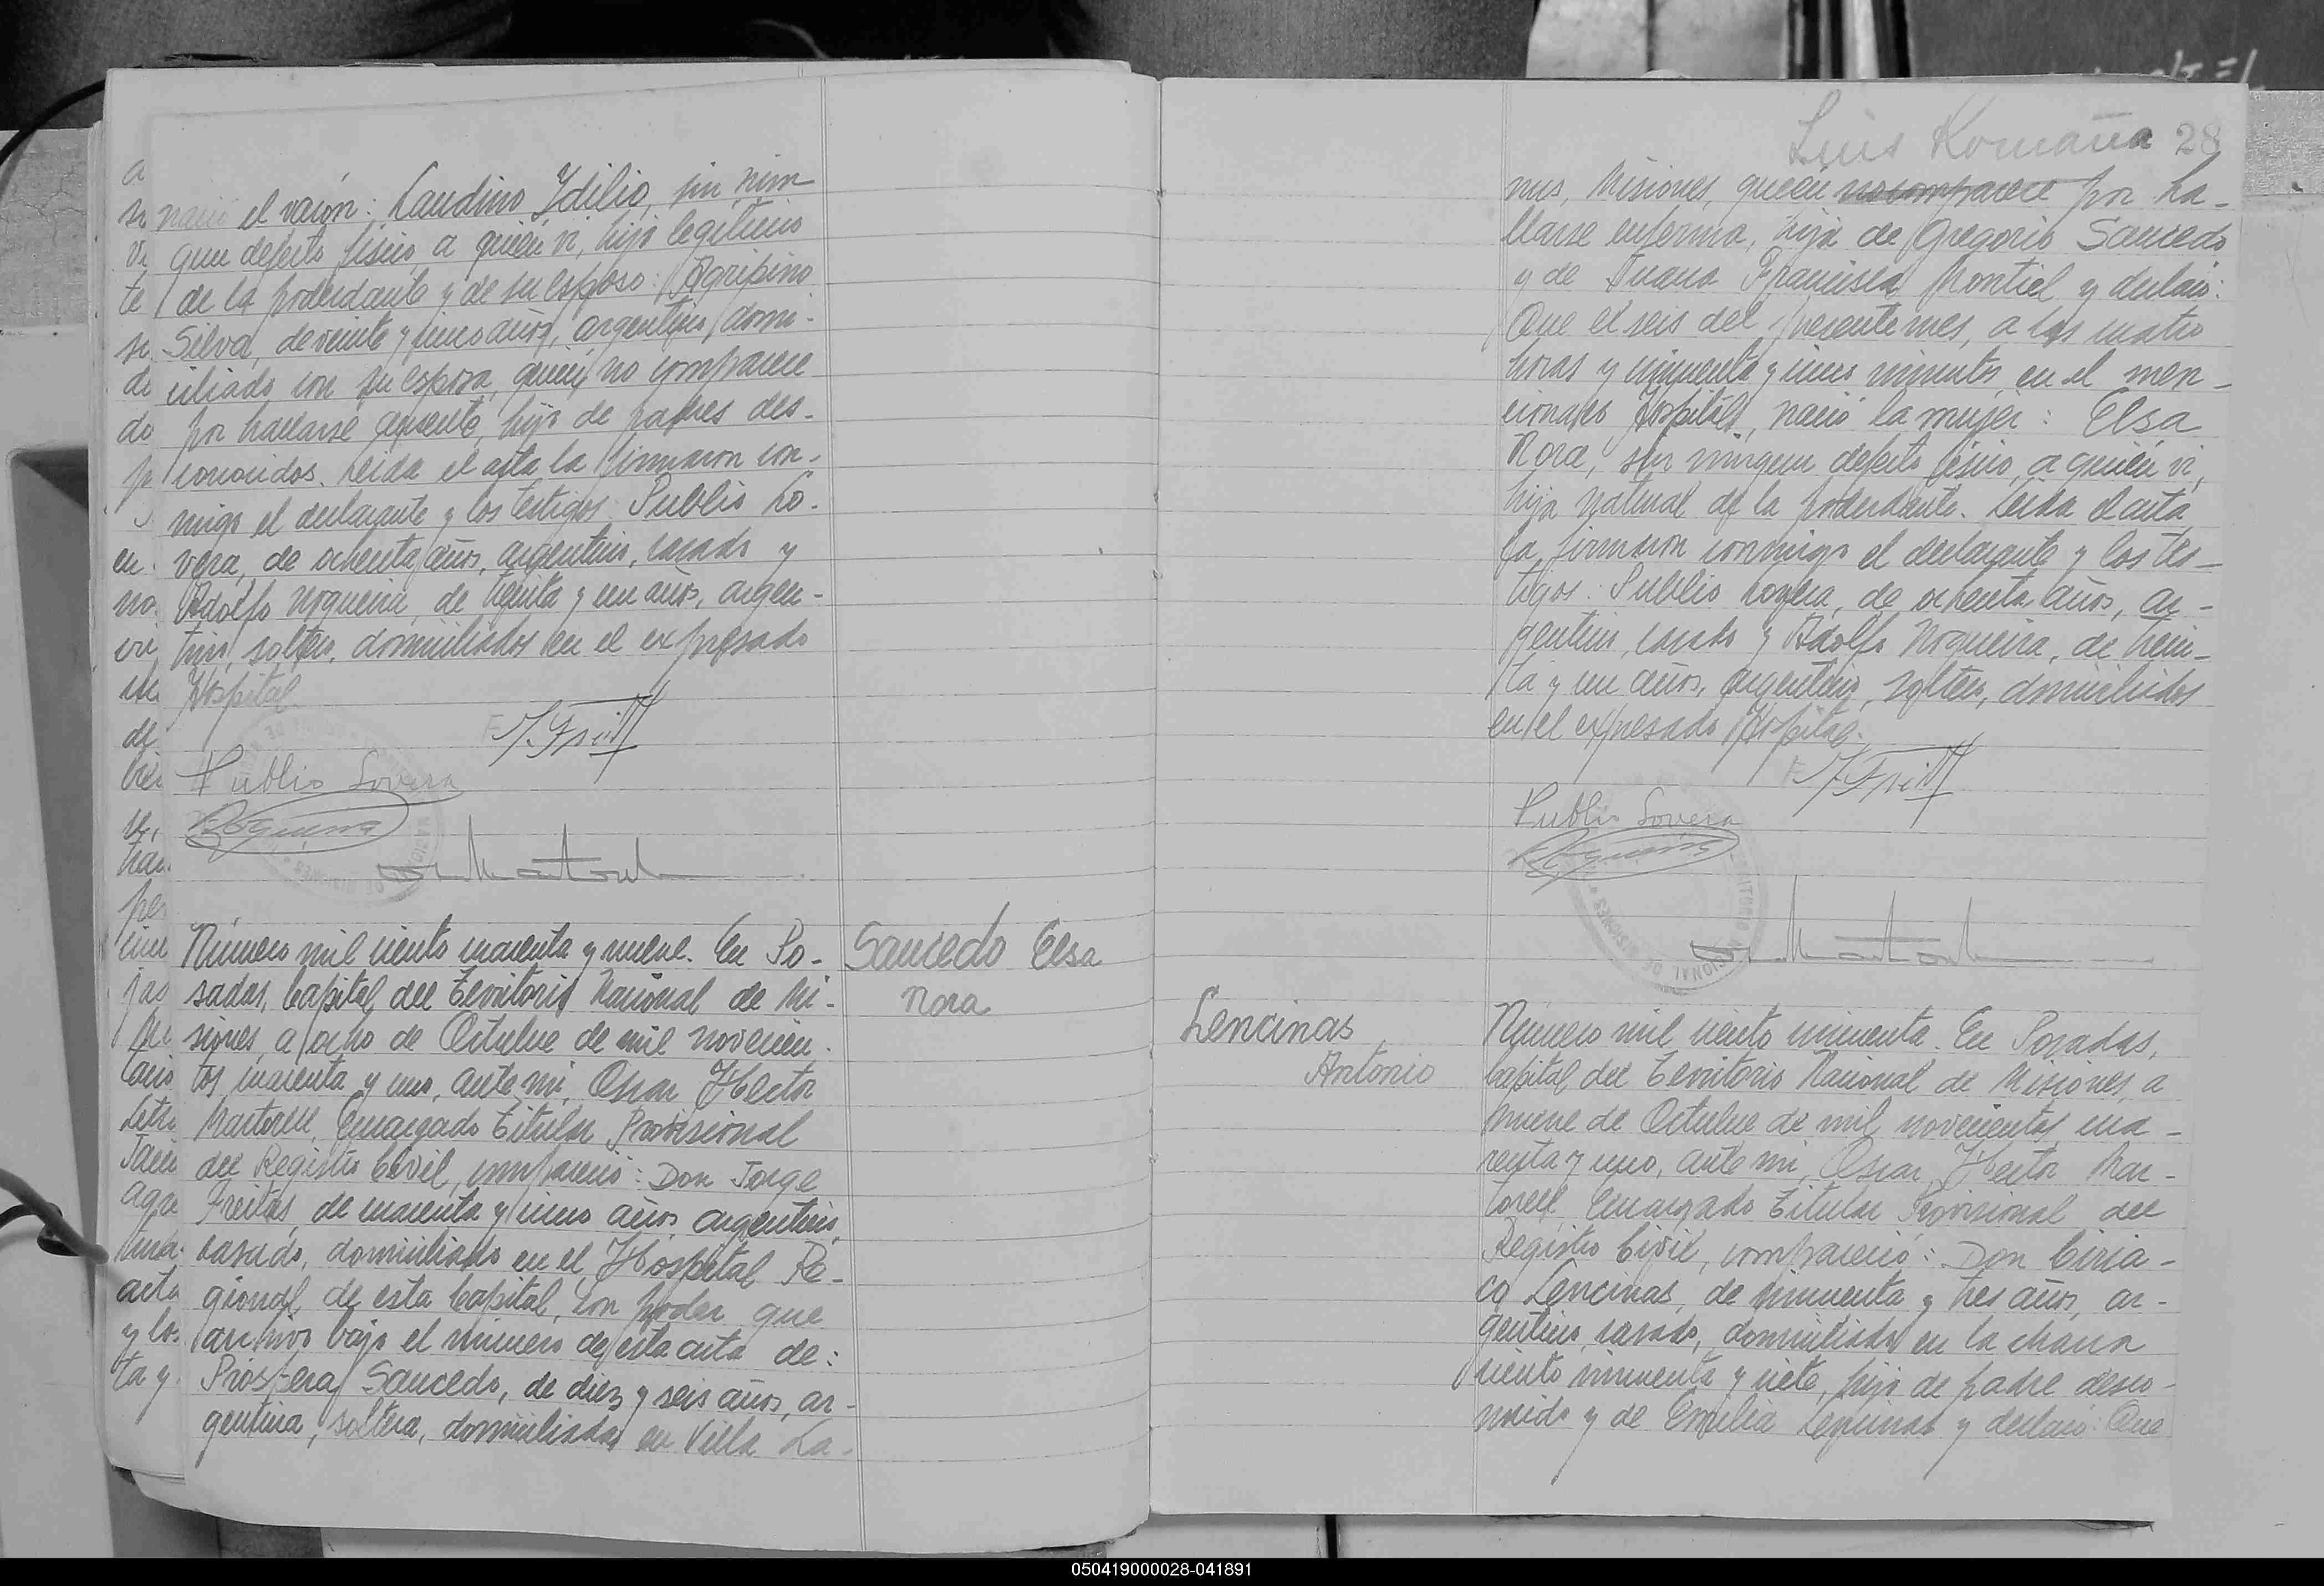 nació el varón: Laudino Ydilio, sin nin
gun defecto físico, a quién vi, hijo legítimo
de la poderdante y de su esposo: Agripino
Silva, de veinte y cinco años, argentino, domi-
ciliado con su esposa, quién no comparece
por hallarse ausente, hijo de padres des-
conocidos. Leída el acta la firmaron con-
migo el declarante y los testigos: Publio Lo-
vera, de ochenta años, argentino, casado y
Adolfo Nogueira, de treinta y un años, argen-
tino, soltero, domiciliados en el expresado
Hospital.
Publio Lovera
Saucedo Elsa
Nora
Número mil ciento cuarenta y nueve. En Po-
sadas, Capital del Territorio Nacional de Mi-
siones, a ocho de Octubre de mil novecien-
tos cuarenta y uno, ante mi, Oscar Hector
Martorell, Encargado Titular Provisional
del Registro Civil, compareció: Don Jorge
Freitas, de cuarenta y cinco años, argentino,
casado, domiciliado en el Hospital Re-
gional de esta Capital, con poder que
archivo bajo el número de esta acta de:
Próspera Saucedo, de diez y seis años, ar-
gentina, soltera, domiciliada en Villa La-
Luis Romaña 28
nus, Misiones, quién no comparece por ha-
llarse enferma, hija de Gregorio Saucedo
y de Juana Francisca Montiel y declaró:
Que el seis del presente mes, a las cuatro
horas y cincuenta y cinco minutos, en el men-
cionado Hospital, nació la mujer: Elsa
Nora, sin ningun defecto físico, a quién vi,
hija natural de la poderdante. Leída el acta,
la firmaron conmigo el declarante y los tes-
tigos: Publio Lovera, de ochenta años, ar-
gentino, casado y Adolfo Nogueira, de trein-
ta y un años, argentino, soltero, domiciliados
en el expresado Hospital.
Publio Lovera
Lencinas
Antonio
Número mil ciento cincuenta. En Posadas,
Capital del Territorio Nacional de Misiones, a
nueve de Octubre de mil novecientos cua-
renta y uno, ante mi, Oscar Hector Mar-
torell, Encargado Titular Provisional del
Registro Civil, compareció: Don Ciria-
co Lencinas, de cincuenta y tres años, ar-
gentino, casado, domiciliado en la chacra
ciento cincuenta y siete, hijo de padre desco-
nocido y de Emilia Lencinas y declaró: Que
050419000028-041891